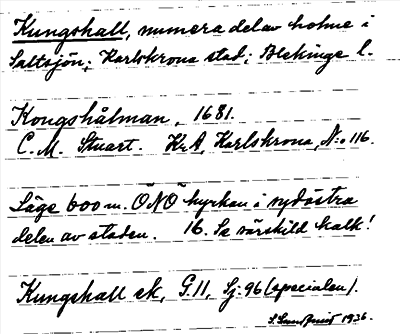 Kungshall, numera del av holme i
Saltsjön; Karlskrona stad; Blekinge l.
Kongshålman, 1681.
C. M. Stuart. KrA, Karlskrona, N:o 116.
Läge 600 m. ÖNÖ kyrkan i sydöstra
delen av staden. 16. Se särskild kalk!
Kungshall ek, G. 11, Sj: 96 (specialen).
1936.